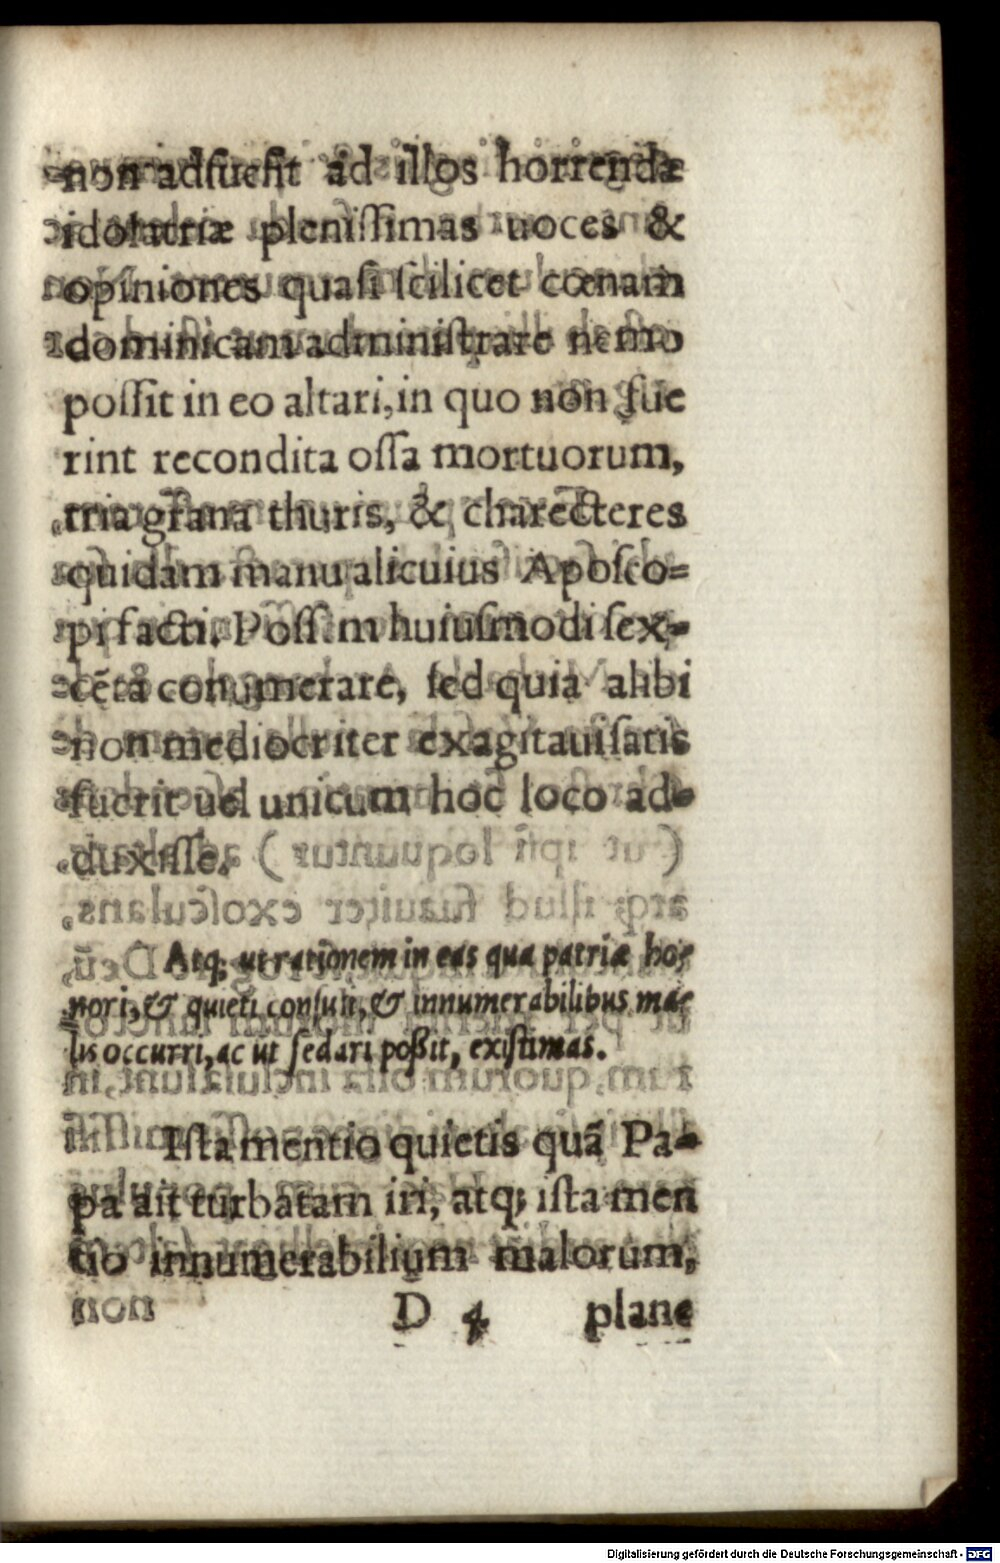 non adsuesit ad illos horrendæ
idolatriæ plenissimas uoces &
opiniones quasi scilicet cœnam
dominicam administrare nemo
possit in eo altari, in quo non fue
rint recondita ossa mortuorum,
tria grana thuris, & charecteres
quidam manu alicuius Aposco=
pi facti. Possem huiusmodi sex-
cẽta conumerare, sed quia alibi
non mediocriter exagitaui satis
fuerit uel unicum hoc loco ad-
duxisse.
Atq; ut rationem in eas qua patriæ ho=
nori, & quieti consuli, & innumerabilibus ma=
lis occurri, ac ut sedari poßit, existimas.
Ista mentio quietis quã Pa-
pa ait turbatam iri, atq; ista men
tio innumerabilium malorum,
D 4 plane
Digitalisierung gefördert durch die Deutsche Forschungsgemeinschaft - DFG